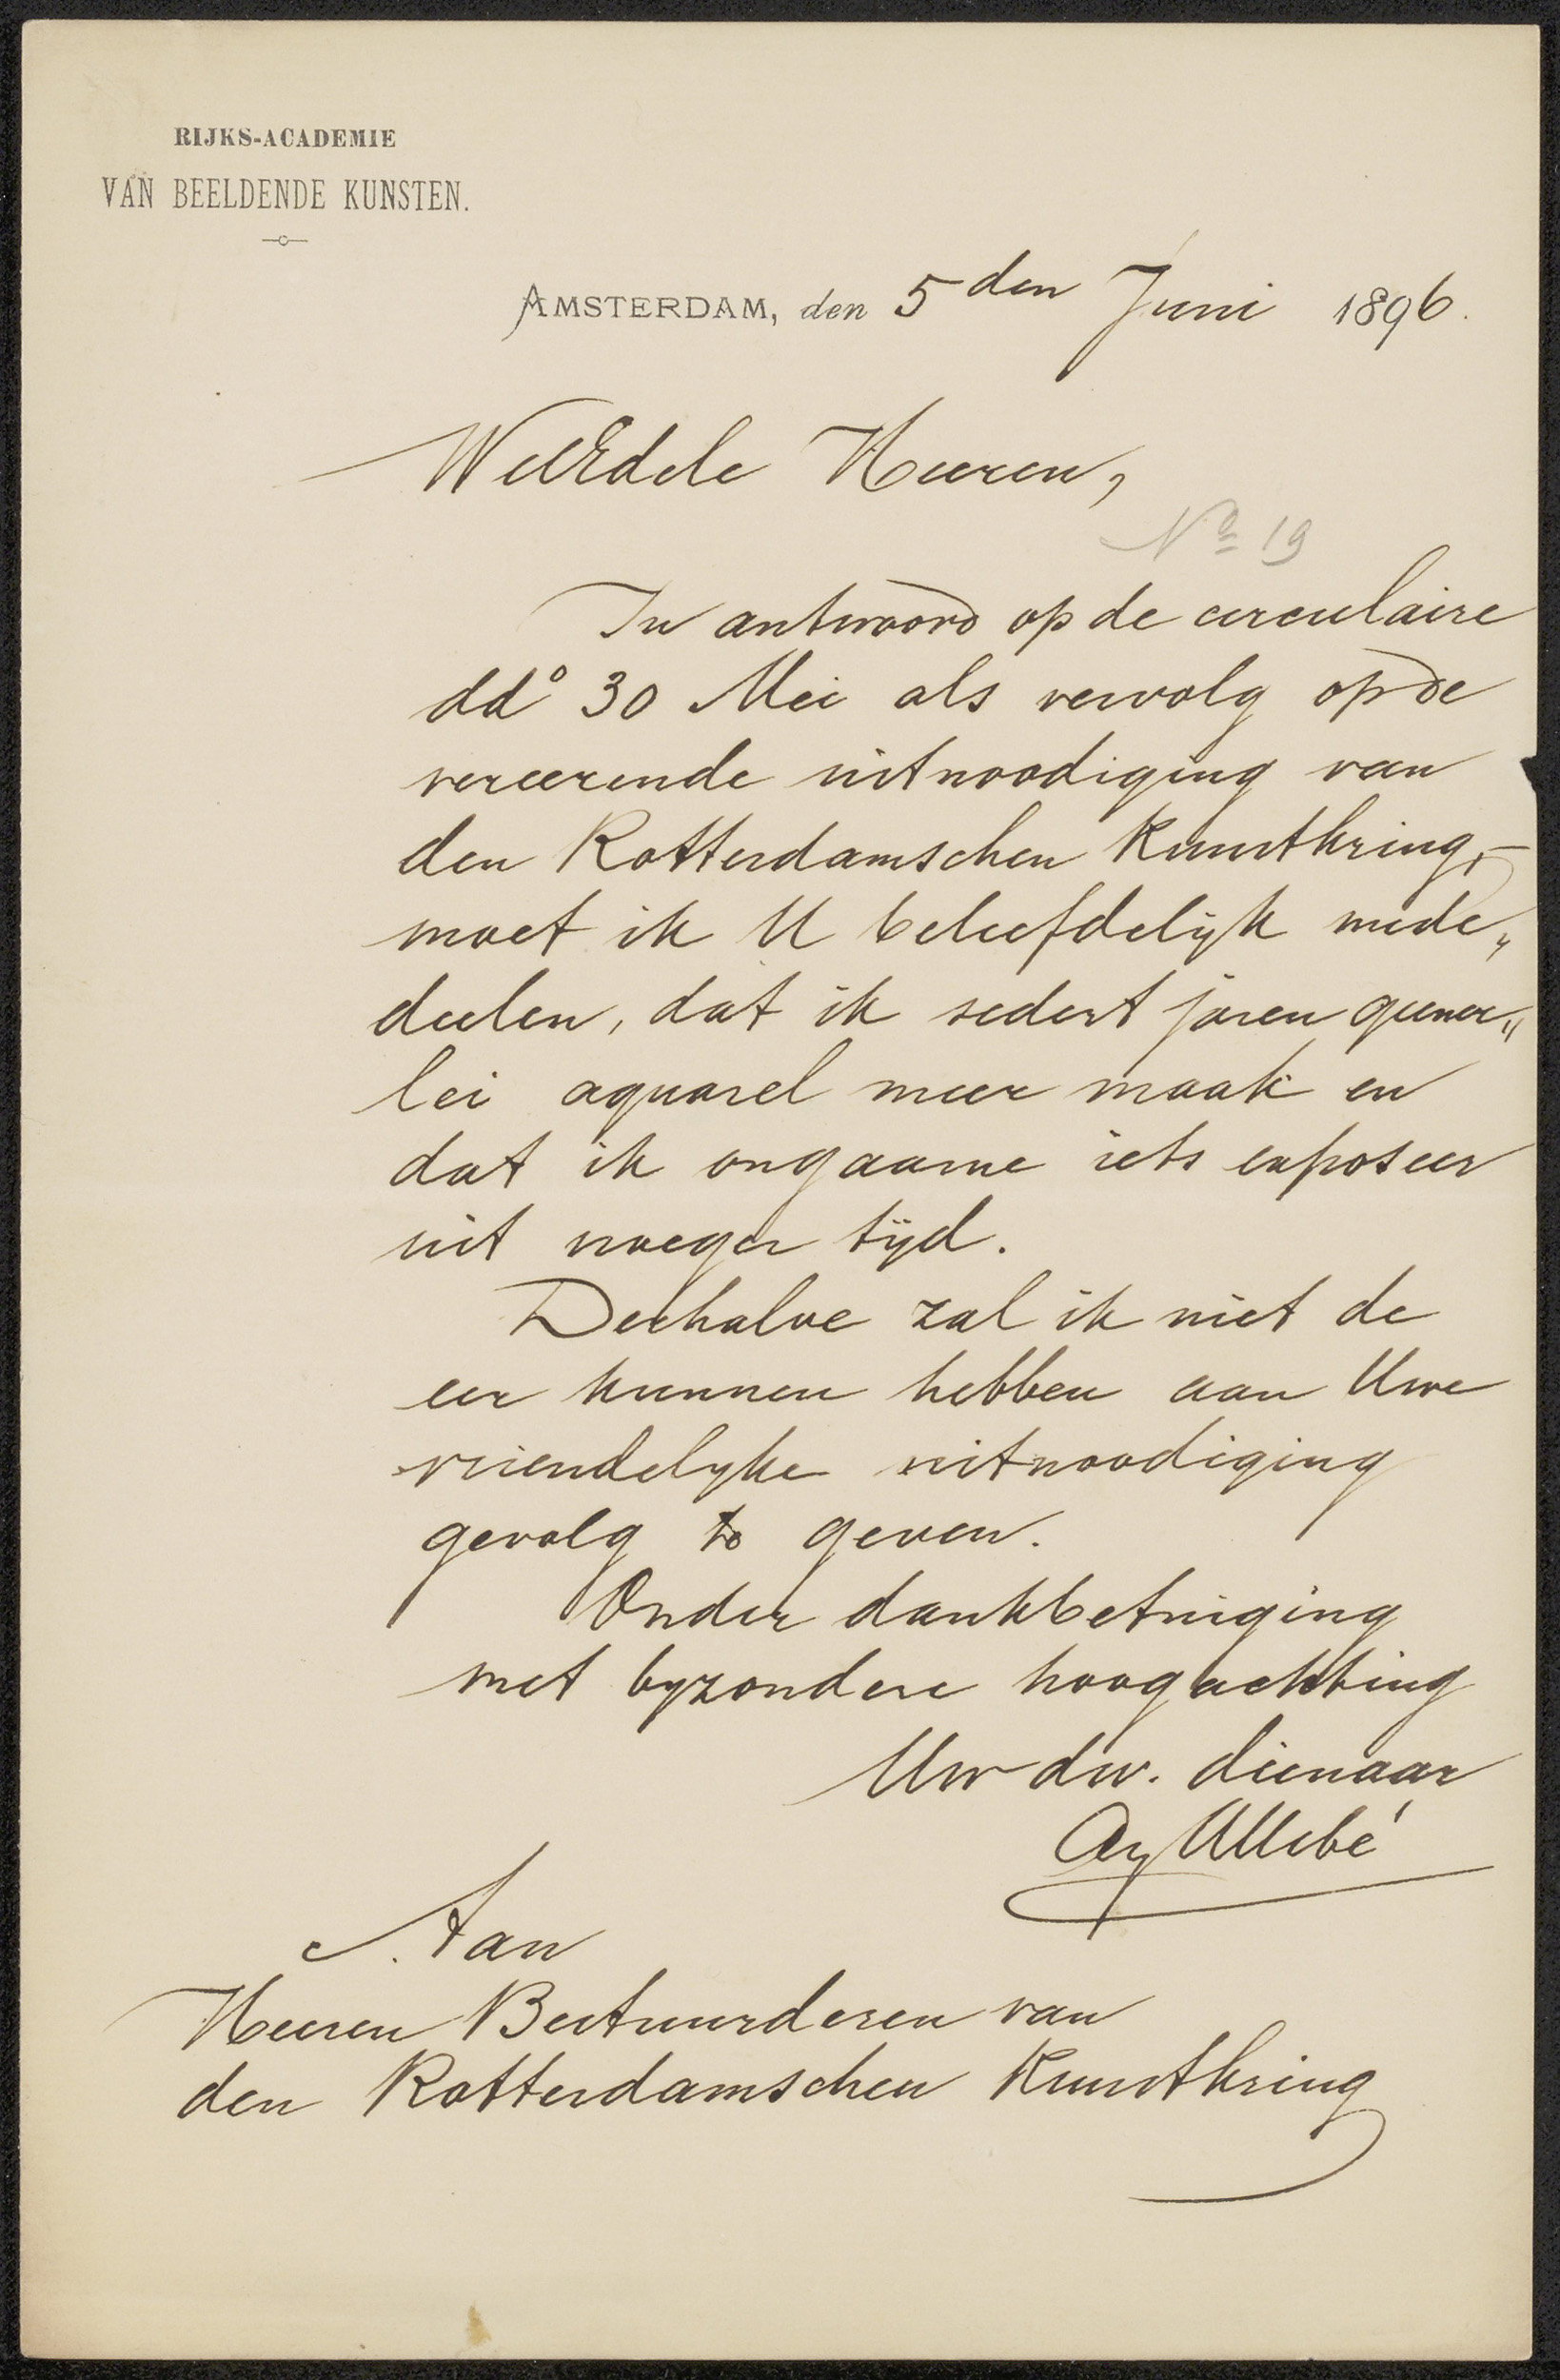 RIJKS-ACADEMIE
VAN BEELDENDE KUNSTEN.
AMSTERDAM, den 5den Juni 1896.
WelEdele Heeren,
No 19
In antwoord op de circulaire
ddo 30 Mei als vervolg op de
vereerende uitnoodiging van
den Rotterdamschen Kunstkring,-
moet ik U beleefdelijk mede„
deelen, dat ik sedert jaren geener„
lei aquarel meer maak en
dat ik ongaarne iets exposeer
uit vroeger tijd.
Derhalve zal ik niet de
eer kunnen hebben aan Uwe
vriendelyke uitnoodiging
gevolg te geven.
Onder dankbetuiging
met byzondere hoogachting
Uw dw. dienaar
Allebé
Aan
Heeren Bestuurderen van
den Rotterdamschen Kunstkring